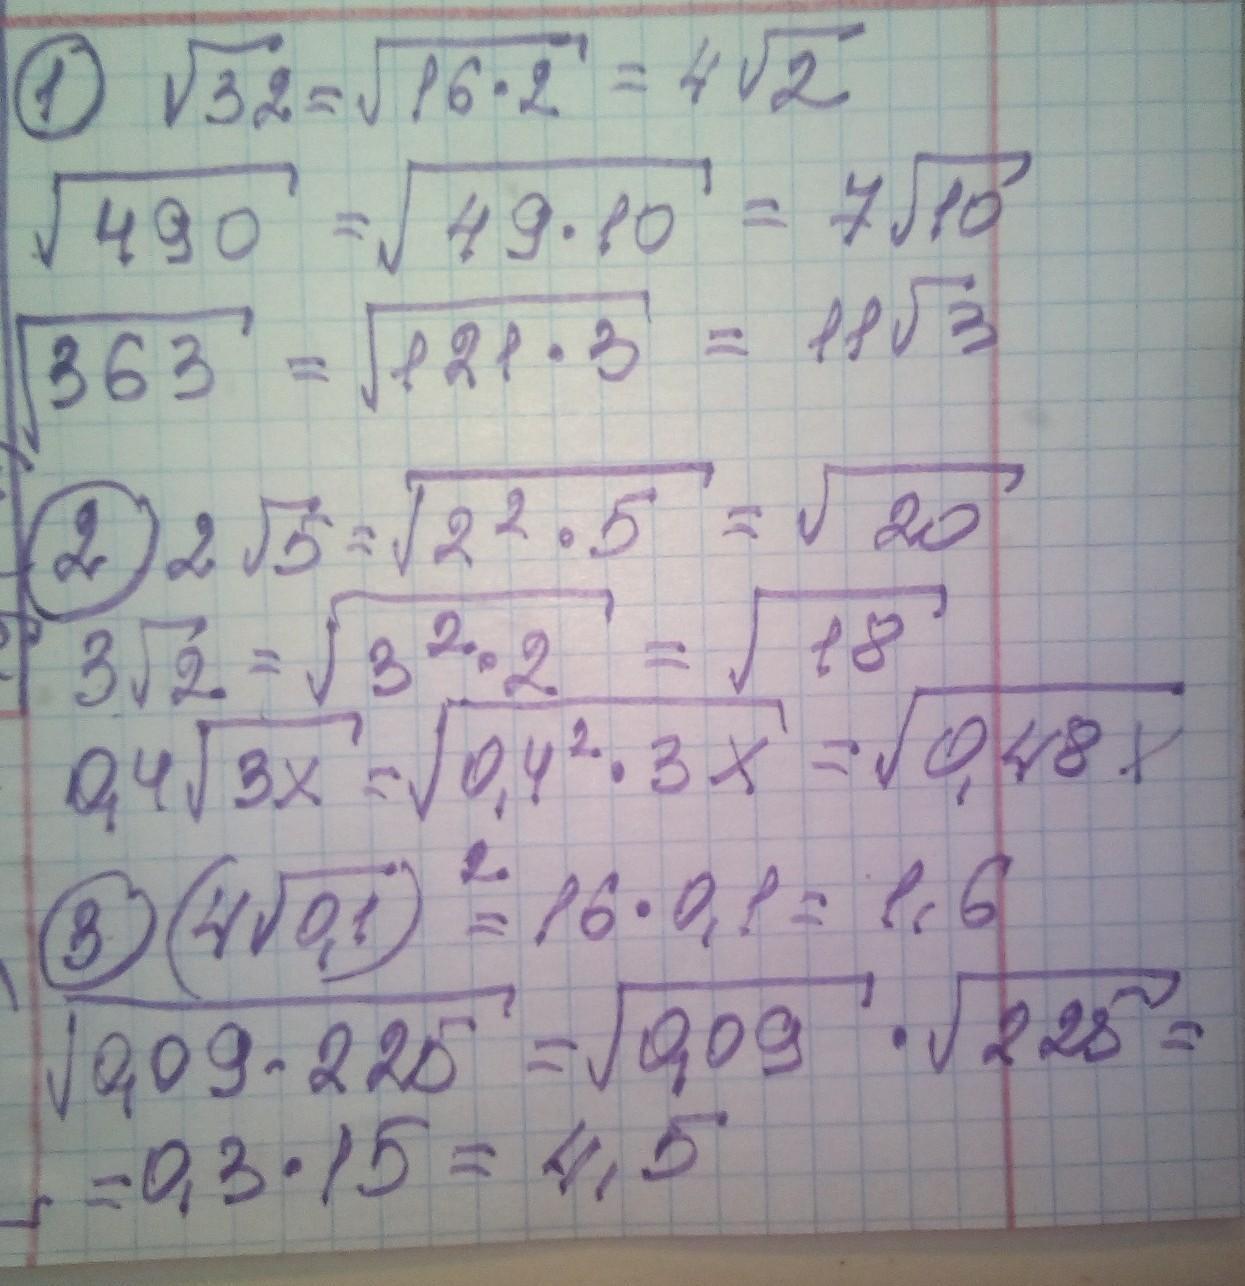 ① √32 = √16·2 = 4√2
√490 = √49·10 = 7√10
√363 = √121·3 = 11√3
② 2√5 = √2²·5 = √20
3√2 = √3²·2 = √18
0,4√3x = √0,4²·3x = √0,48x
③ (4√0,1)² = 16·0,1 = 1,6
√0,09·225 = √0,09 · √225 =
= 0,3·15 = 4,5